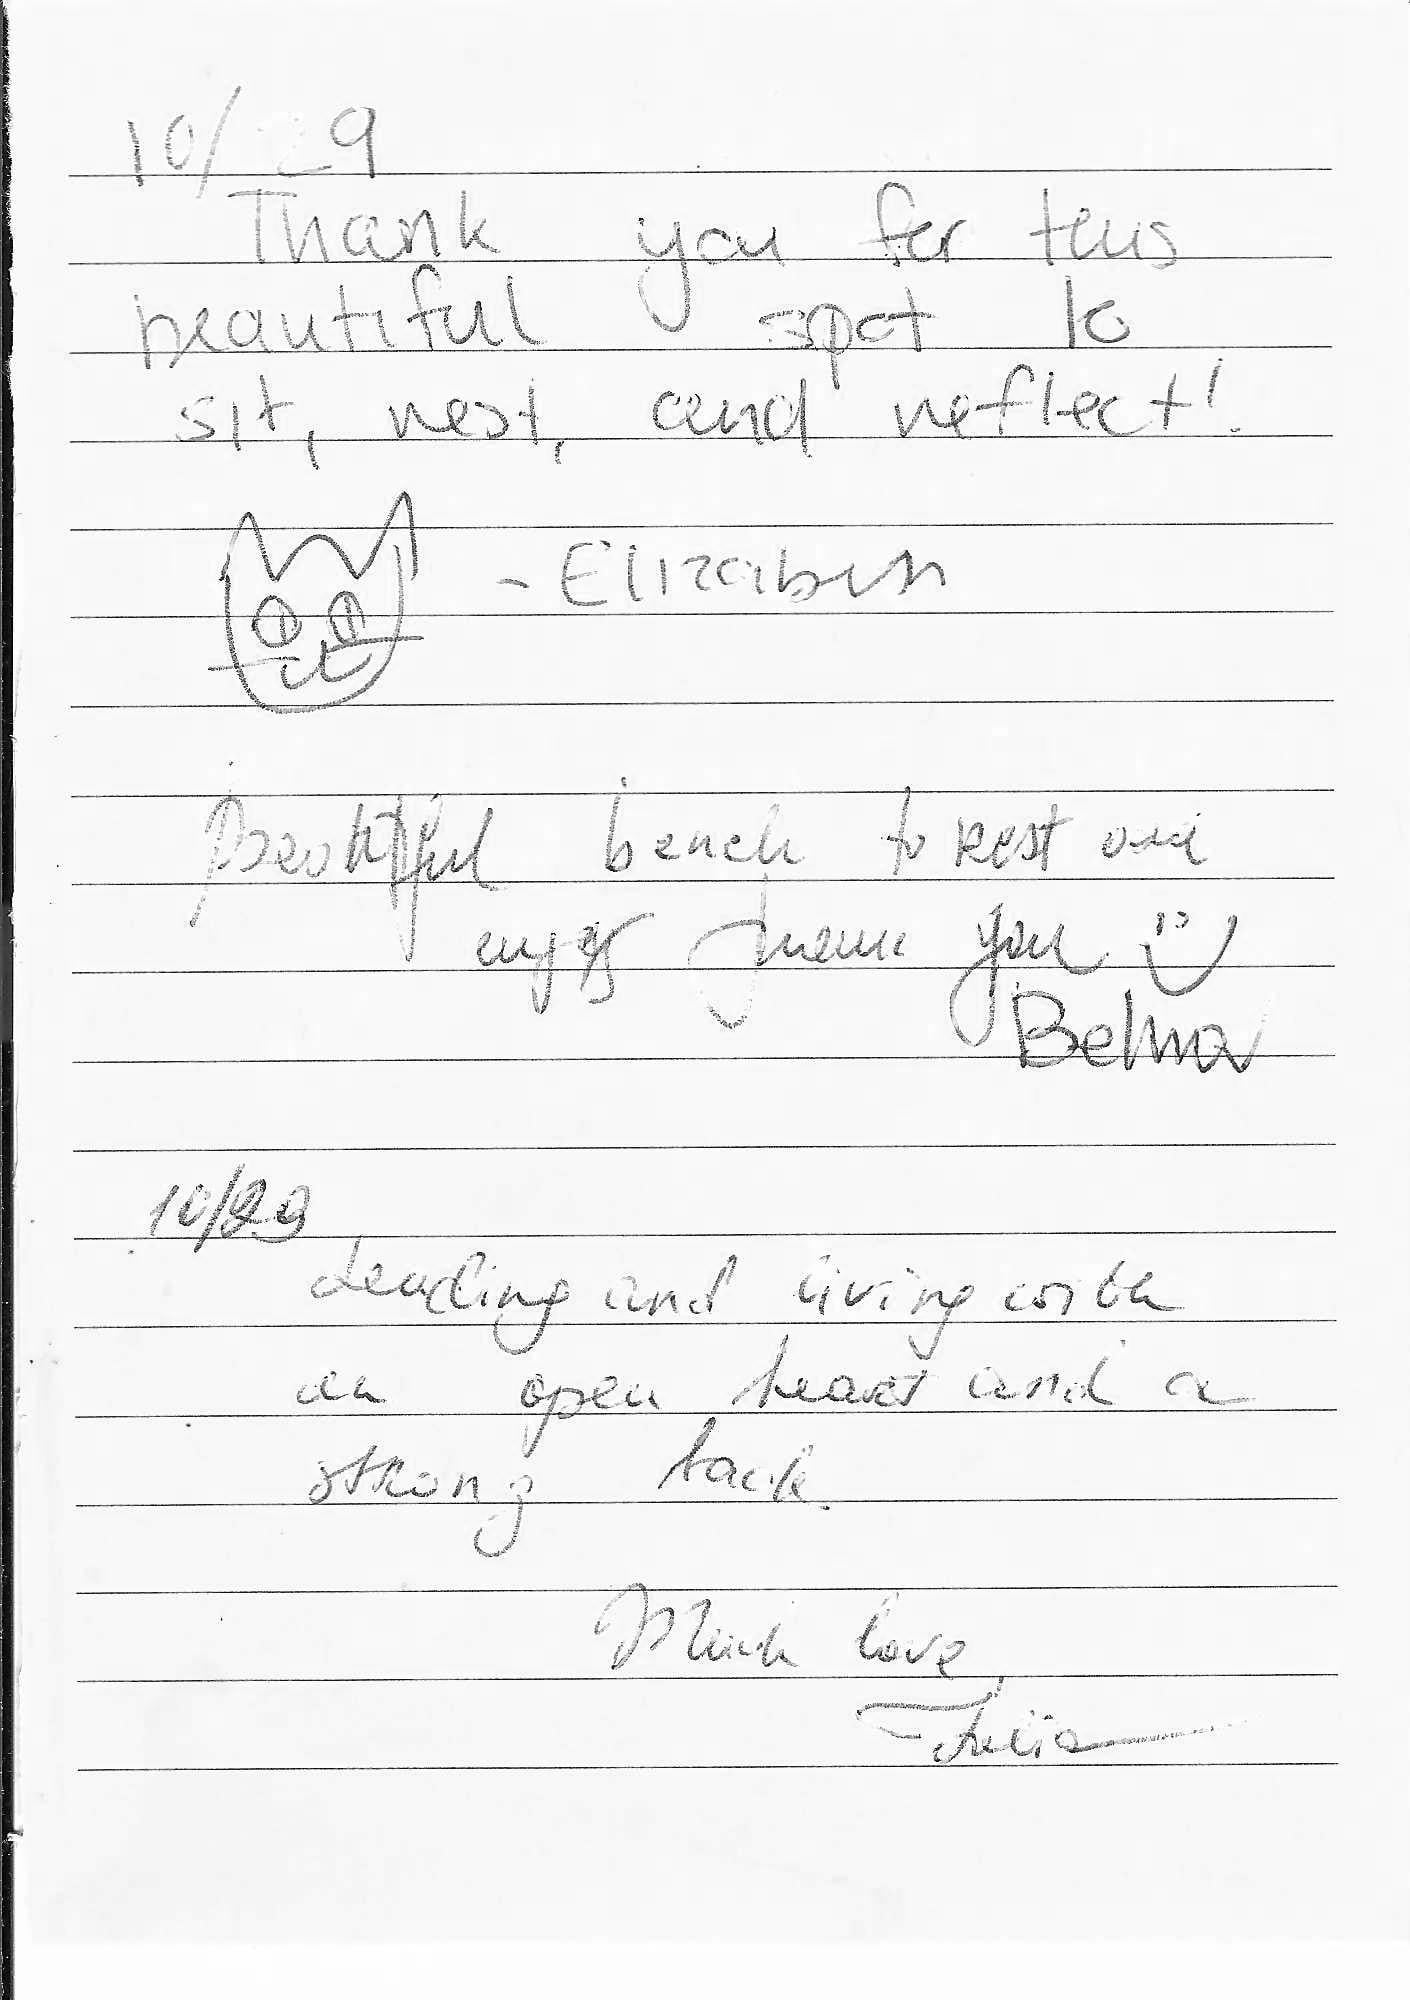 10/29
Thank you for this
beautiful spot to
sit, rest, and reflect!
- Elizabeth
Beautiful bench to rest and
enjoy Thank you
10/29
Leading and living with
an open heart and a
strong back.
Much love,
Julia